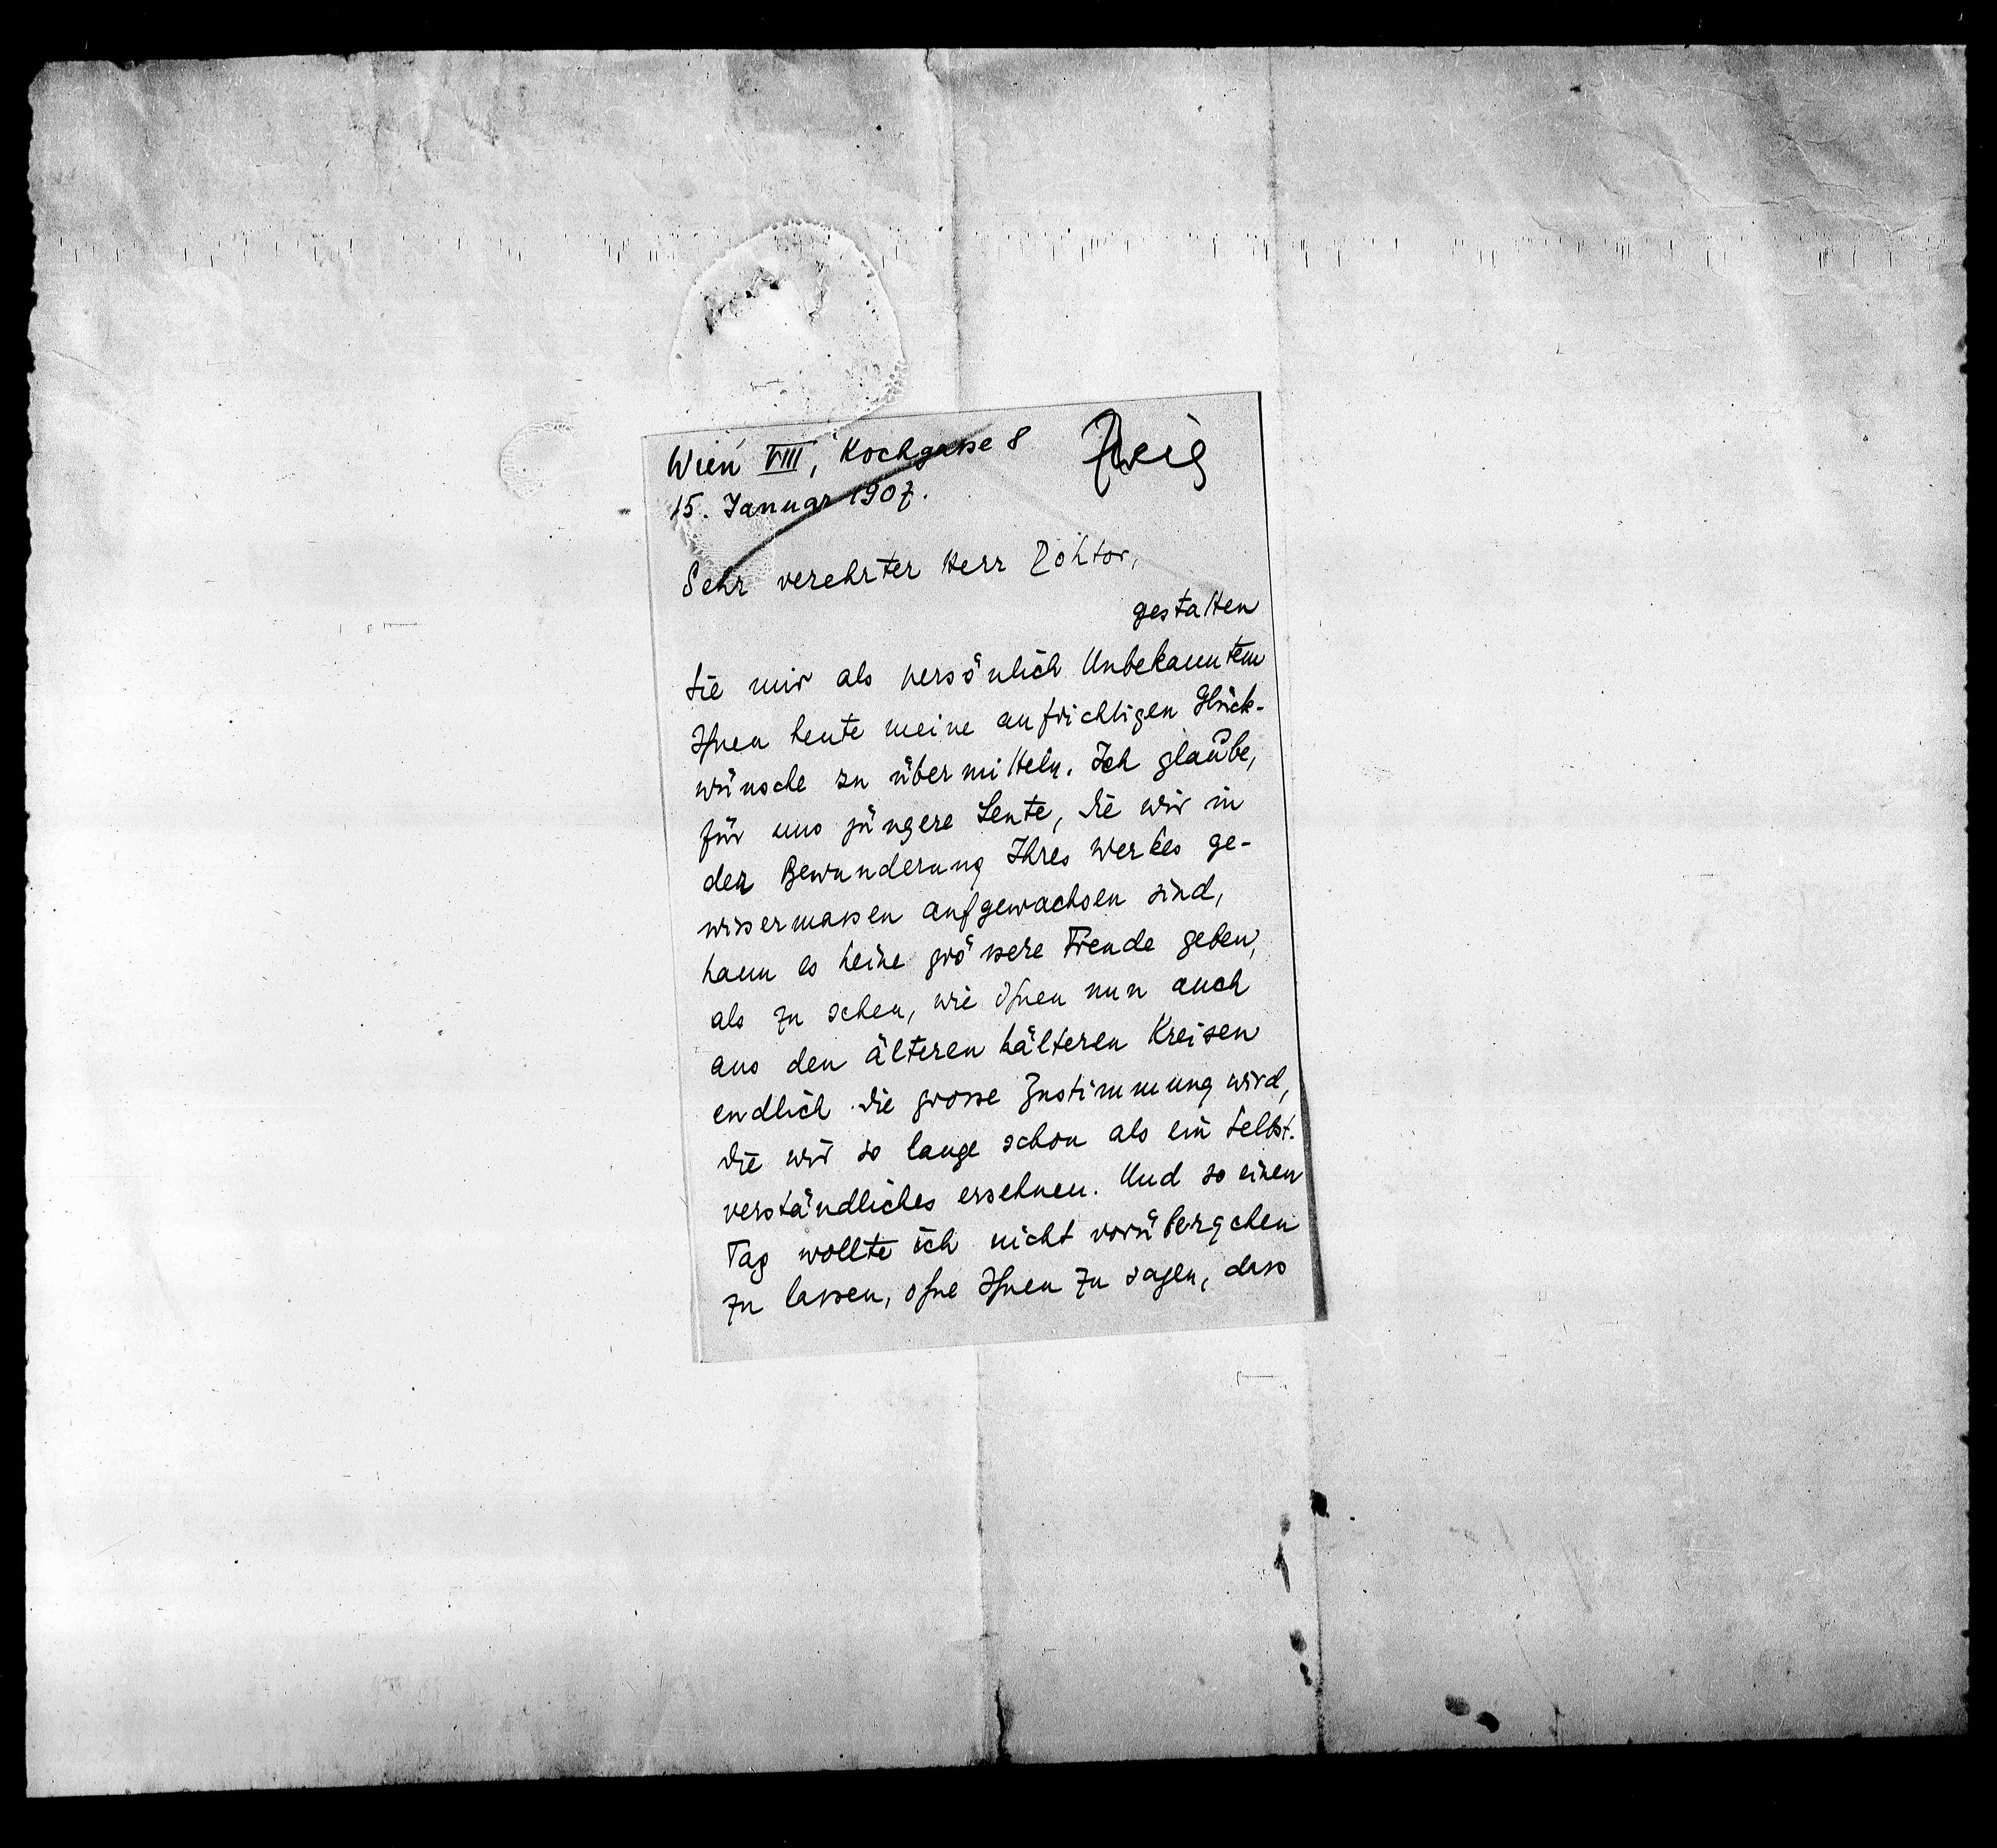 Wien VIII, Kochgasse 8
Zweig
15. Januar 1907.
Sehr verehrter Herr Doktor,
gestatten
Sie mir als persönlich Unbekanntem
Ihnen heute meine aufrichtigen Glück-
wünsche zu übermitteln. Ich glaube,
für uns jüngere Leute, die wir in
der Bewunderung Ihres Werkes ge-
wissermassen aufgewachsen sind,
kann es keine grössere Freude geben,
als zu sehen, wie Ihnen nun auch
aus den älteren kälteren Kreisen
endlich die grosse Zustimmung wird,
die wir so lange schon als ein Selbst-
verständliches ersehnen. Und so einen
Tag wollte ich nicht vorübergehen
zu lassen, ohne Ihnen zu sagen, dass